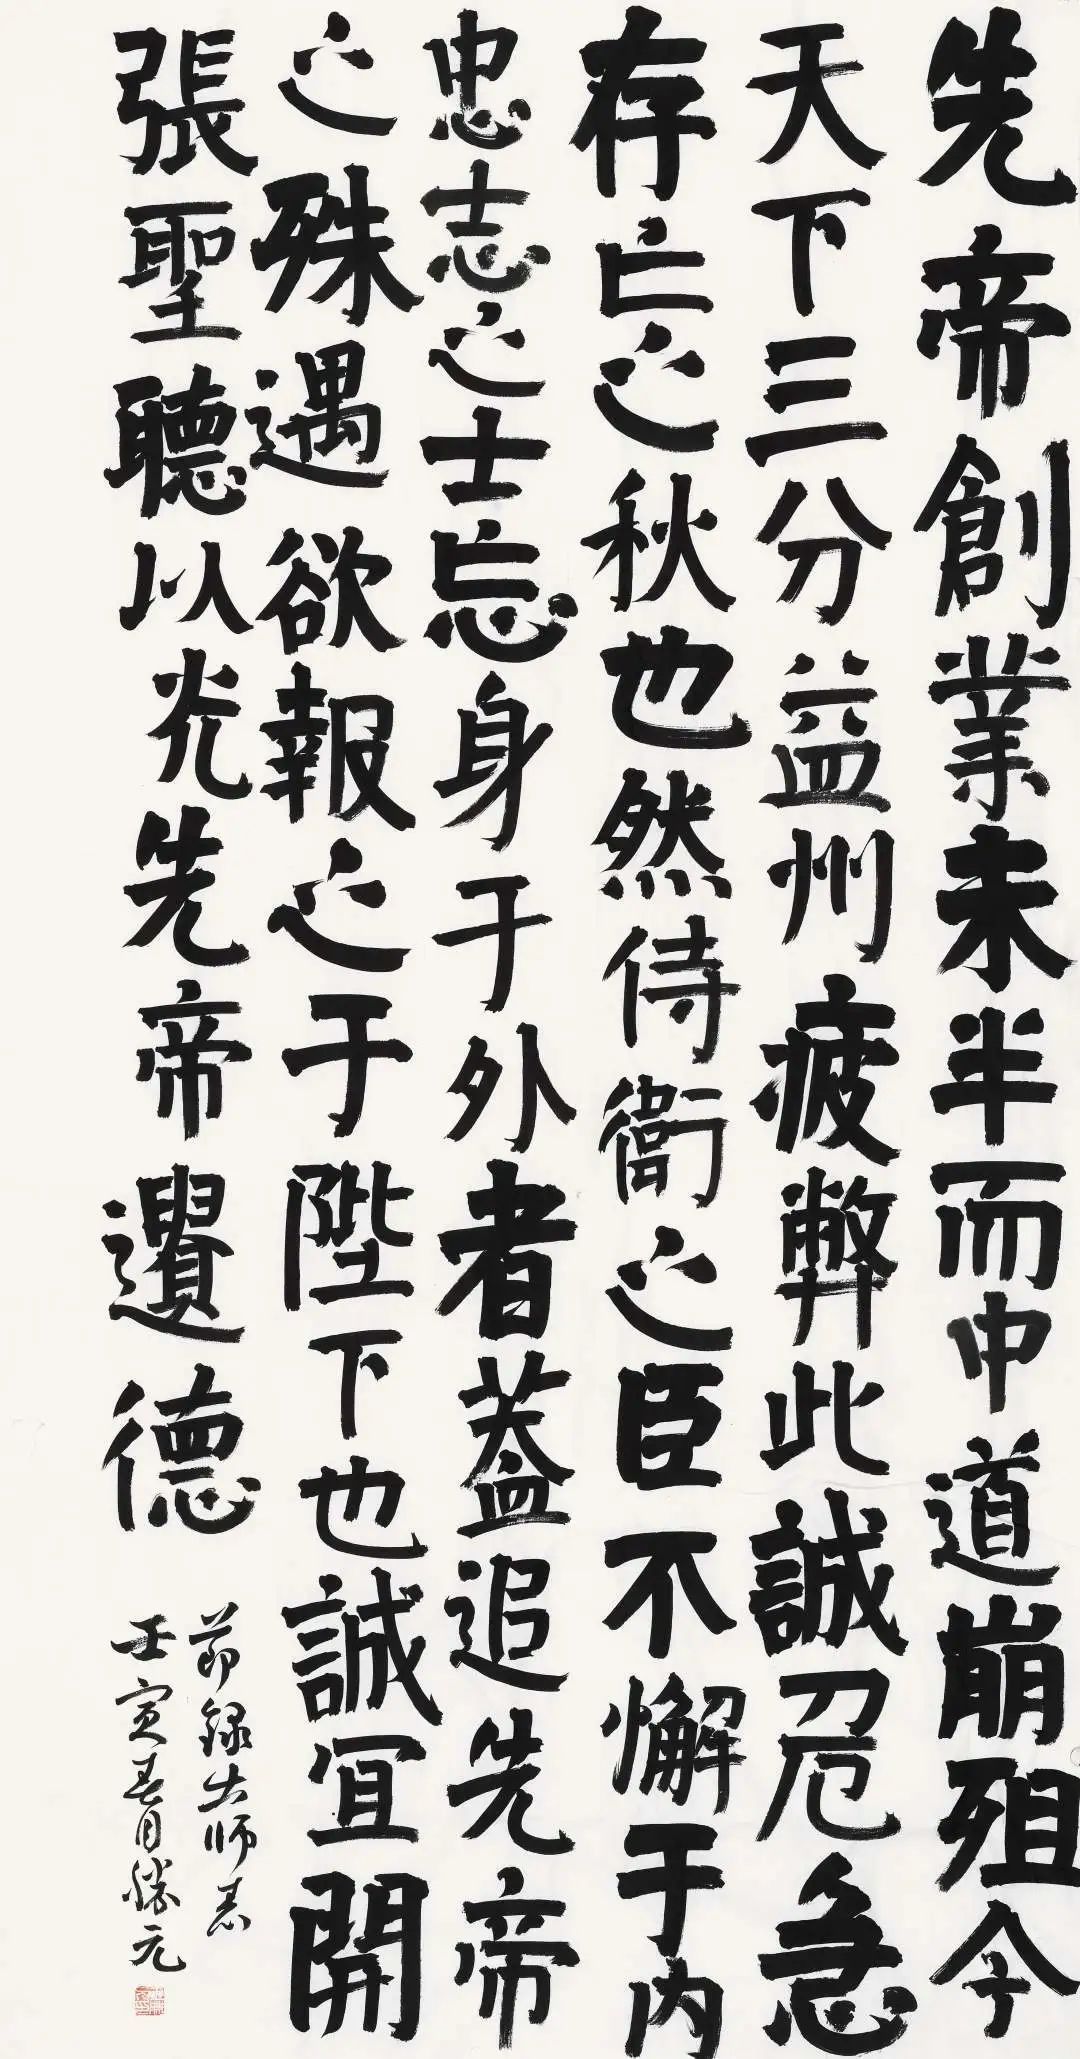 先帝創業未半而中道崩殂今
天下三分益州疲弊此誠危急
存亡之秋也然侍衛之臣不懈于内
忠志之士忘身于外者蓋追先帝
之殊遇欲報之于陛下也誠宜開
張聖聽以光先帝遺德
節録出師表
壬寅春月勝元